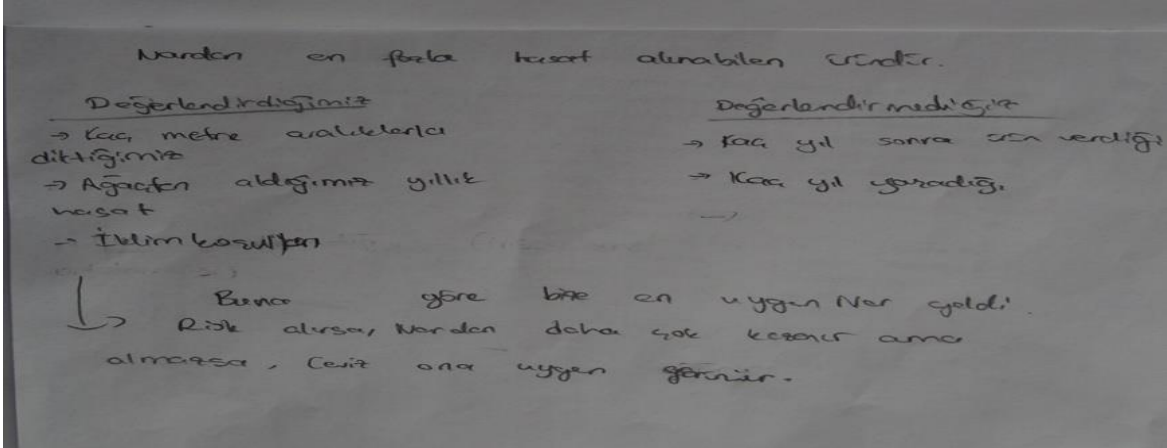 Nardan en fazla hasat alınabilen üründür.
Değerlendirdiğimiz
→ Kaç metre aralıklarla
diktiğimiz
→ Ağaçtan aldığımız yıllık
hasat
→ İklim koşulları
Değerlendirmediğimiz
→ Kaç yıl sonra ürün verdiği
→ Kaç yıl yaşadığı
→
Buna göre bize en uygun Nar geldi.
→ Risk alırsa, Nardan daha çok kazanır ama
almazsa, Ceviz ona uygun görünür.